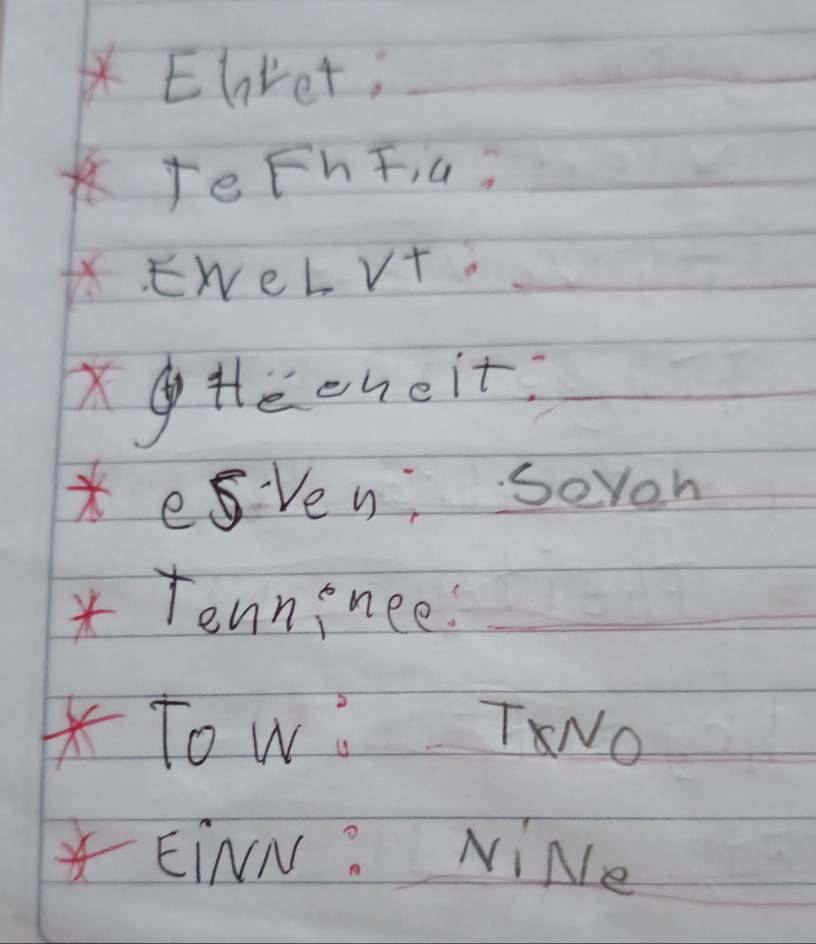 * Ehret:
* TeFhFiu:
* EWeLVT:
* gHeeneit:
* esven: Seven
* Tenninee:
* ToW: TWo
* EiNN: NiNe